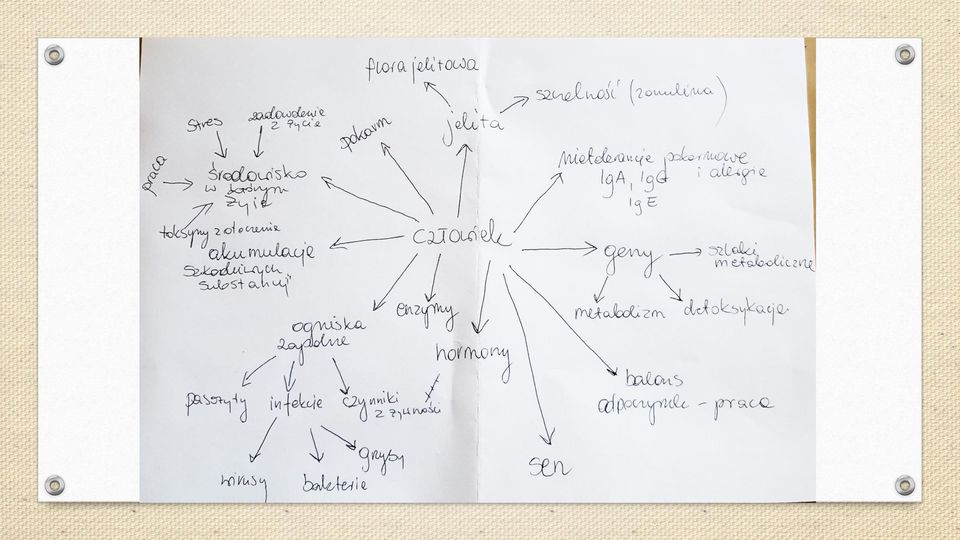 flora jelitowa
szczelność (zonulina)
jelita
stres
zadowolenie
z życia
pokarm
praca
środowisko
w którym
żyje
nietolerancje pokarmowe
IgA, IgG i alergie
IgE
toksyny z otoczenia
człowiek
akumulacje
szkodliwych
substancji
geny
szlaki
metaboliczne
enzymy
metabolizm
detoksykacje
ogniska
zapalne
hormony
balans
odpoczynek - praca
pasożyty
infekcje
czynniki
z żywności
grzyby
sen
wirusy
bakterie